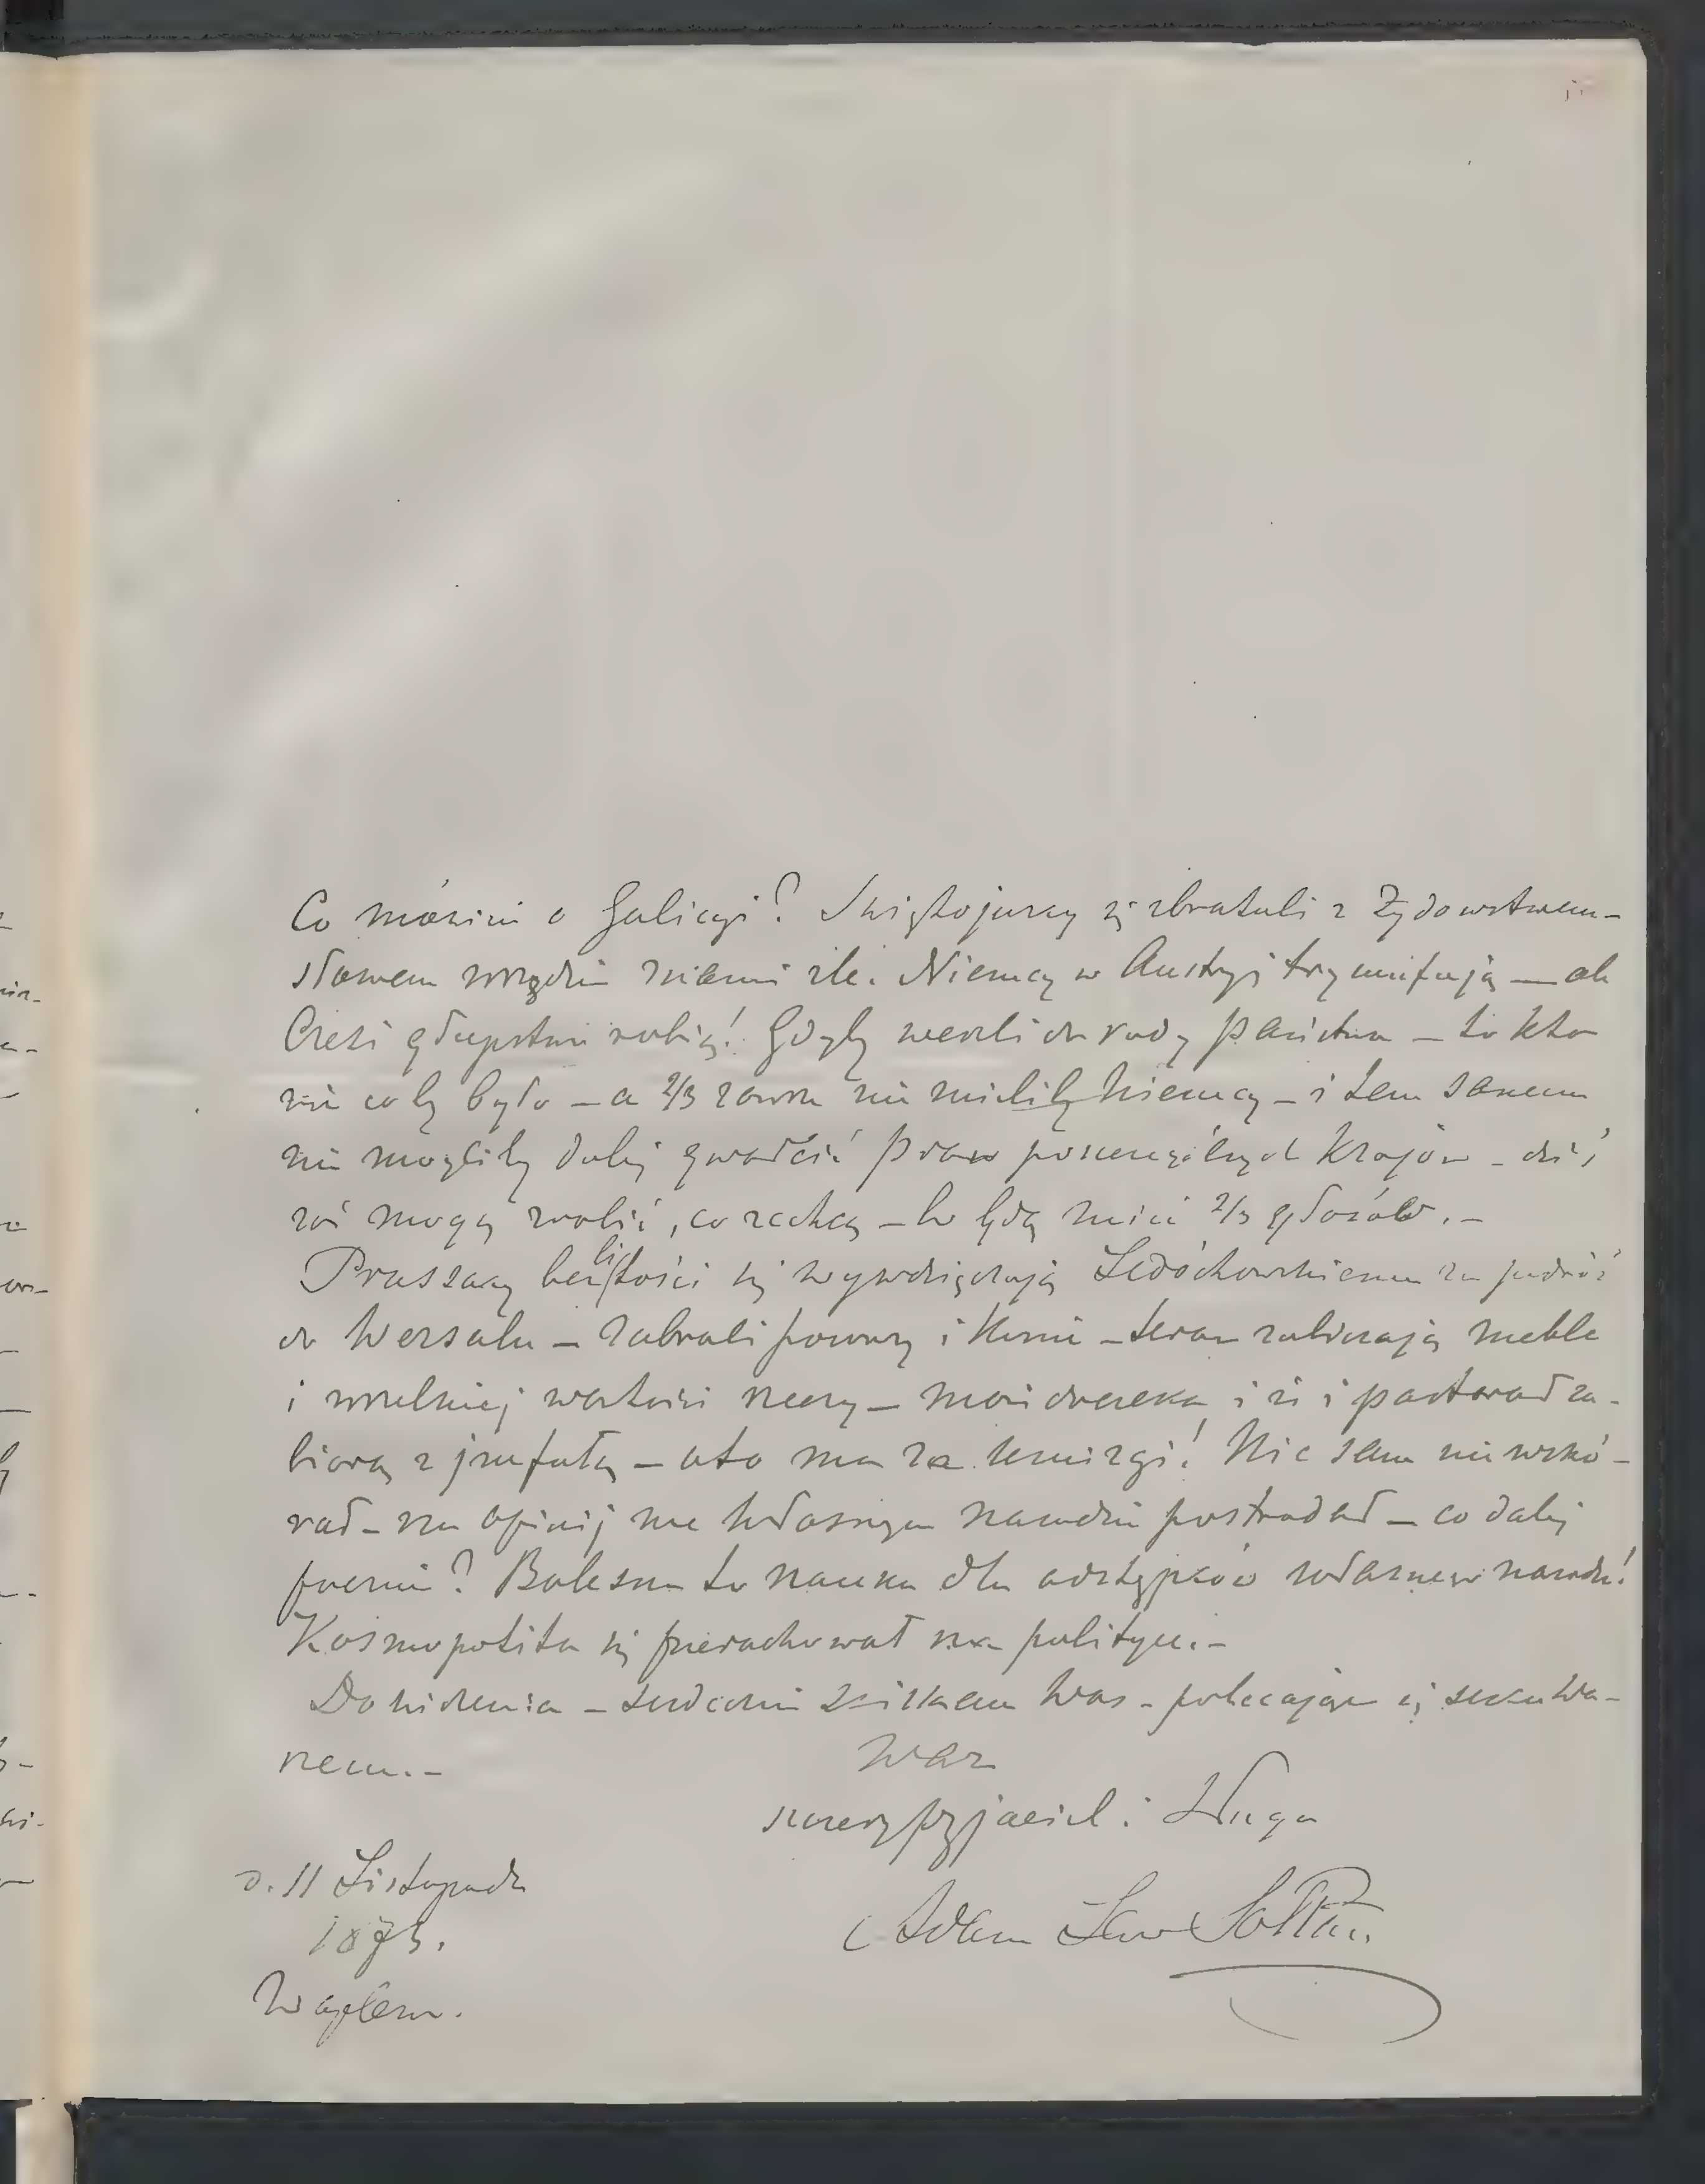 Co mówicie o Galicyi? Swiętojurcy się zbratali z Żydowstwem –
słowem wszędzie z nami źle. Niemcy w Austryi tryumfują — ale
Czesi głupstwa robią! Gdyby weszli do rady państwa – to kto
wie coby było – a 2/3 zawsze nie mieliby Niemcy – i tem samem
nie mogliby dalej gwałcić praw poszczególnych krajów – dziś
zaś mogą zrobić, co zechcą – bo będą mieć 2/3 głosów. –
Prusacy bez litości się wywdzięczają Ledóchowskiemu za podróż
do Wersalu – zabrali powozy i konie – teraz zabierają meble
i wszelkiej wartości rzeczy – może doczeka i że i pastorał za-
biorą z infułą – oto ma za umizgi! Nic sam nie wskó-
rał – na opinij we własnym narodzie postradał – co dalej
pocznie? Bolesna to nauka dla odstępców własnego narodu!
Kosmopolita się przerachował na polityce. –
Do widzenia – serdecznie ściskam Was – polecając się
nem. –
Wasz
szczery przyjaciel i Sługa
Adam Lew Sołtan
d. 11 Listopada
1873.